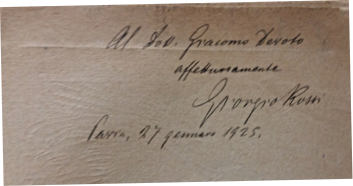 Al Dott. Giacomo Devoto
affettuosamente
Giorgio Rossi
Pavia, 27 gennaio 1925.